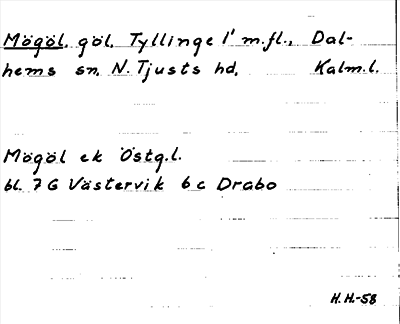 Mögöl, göl, Tyllinge 1' m.fl., Dal-
hems sn, N. Tjusts hd, Kalm.l.
Mögöl ek Östg.l.
bl. 7 G Västervik 6 c Drabo
H.H.-58